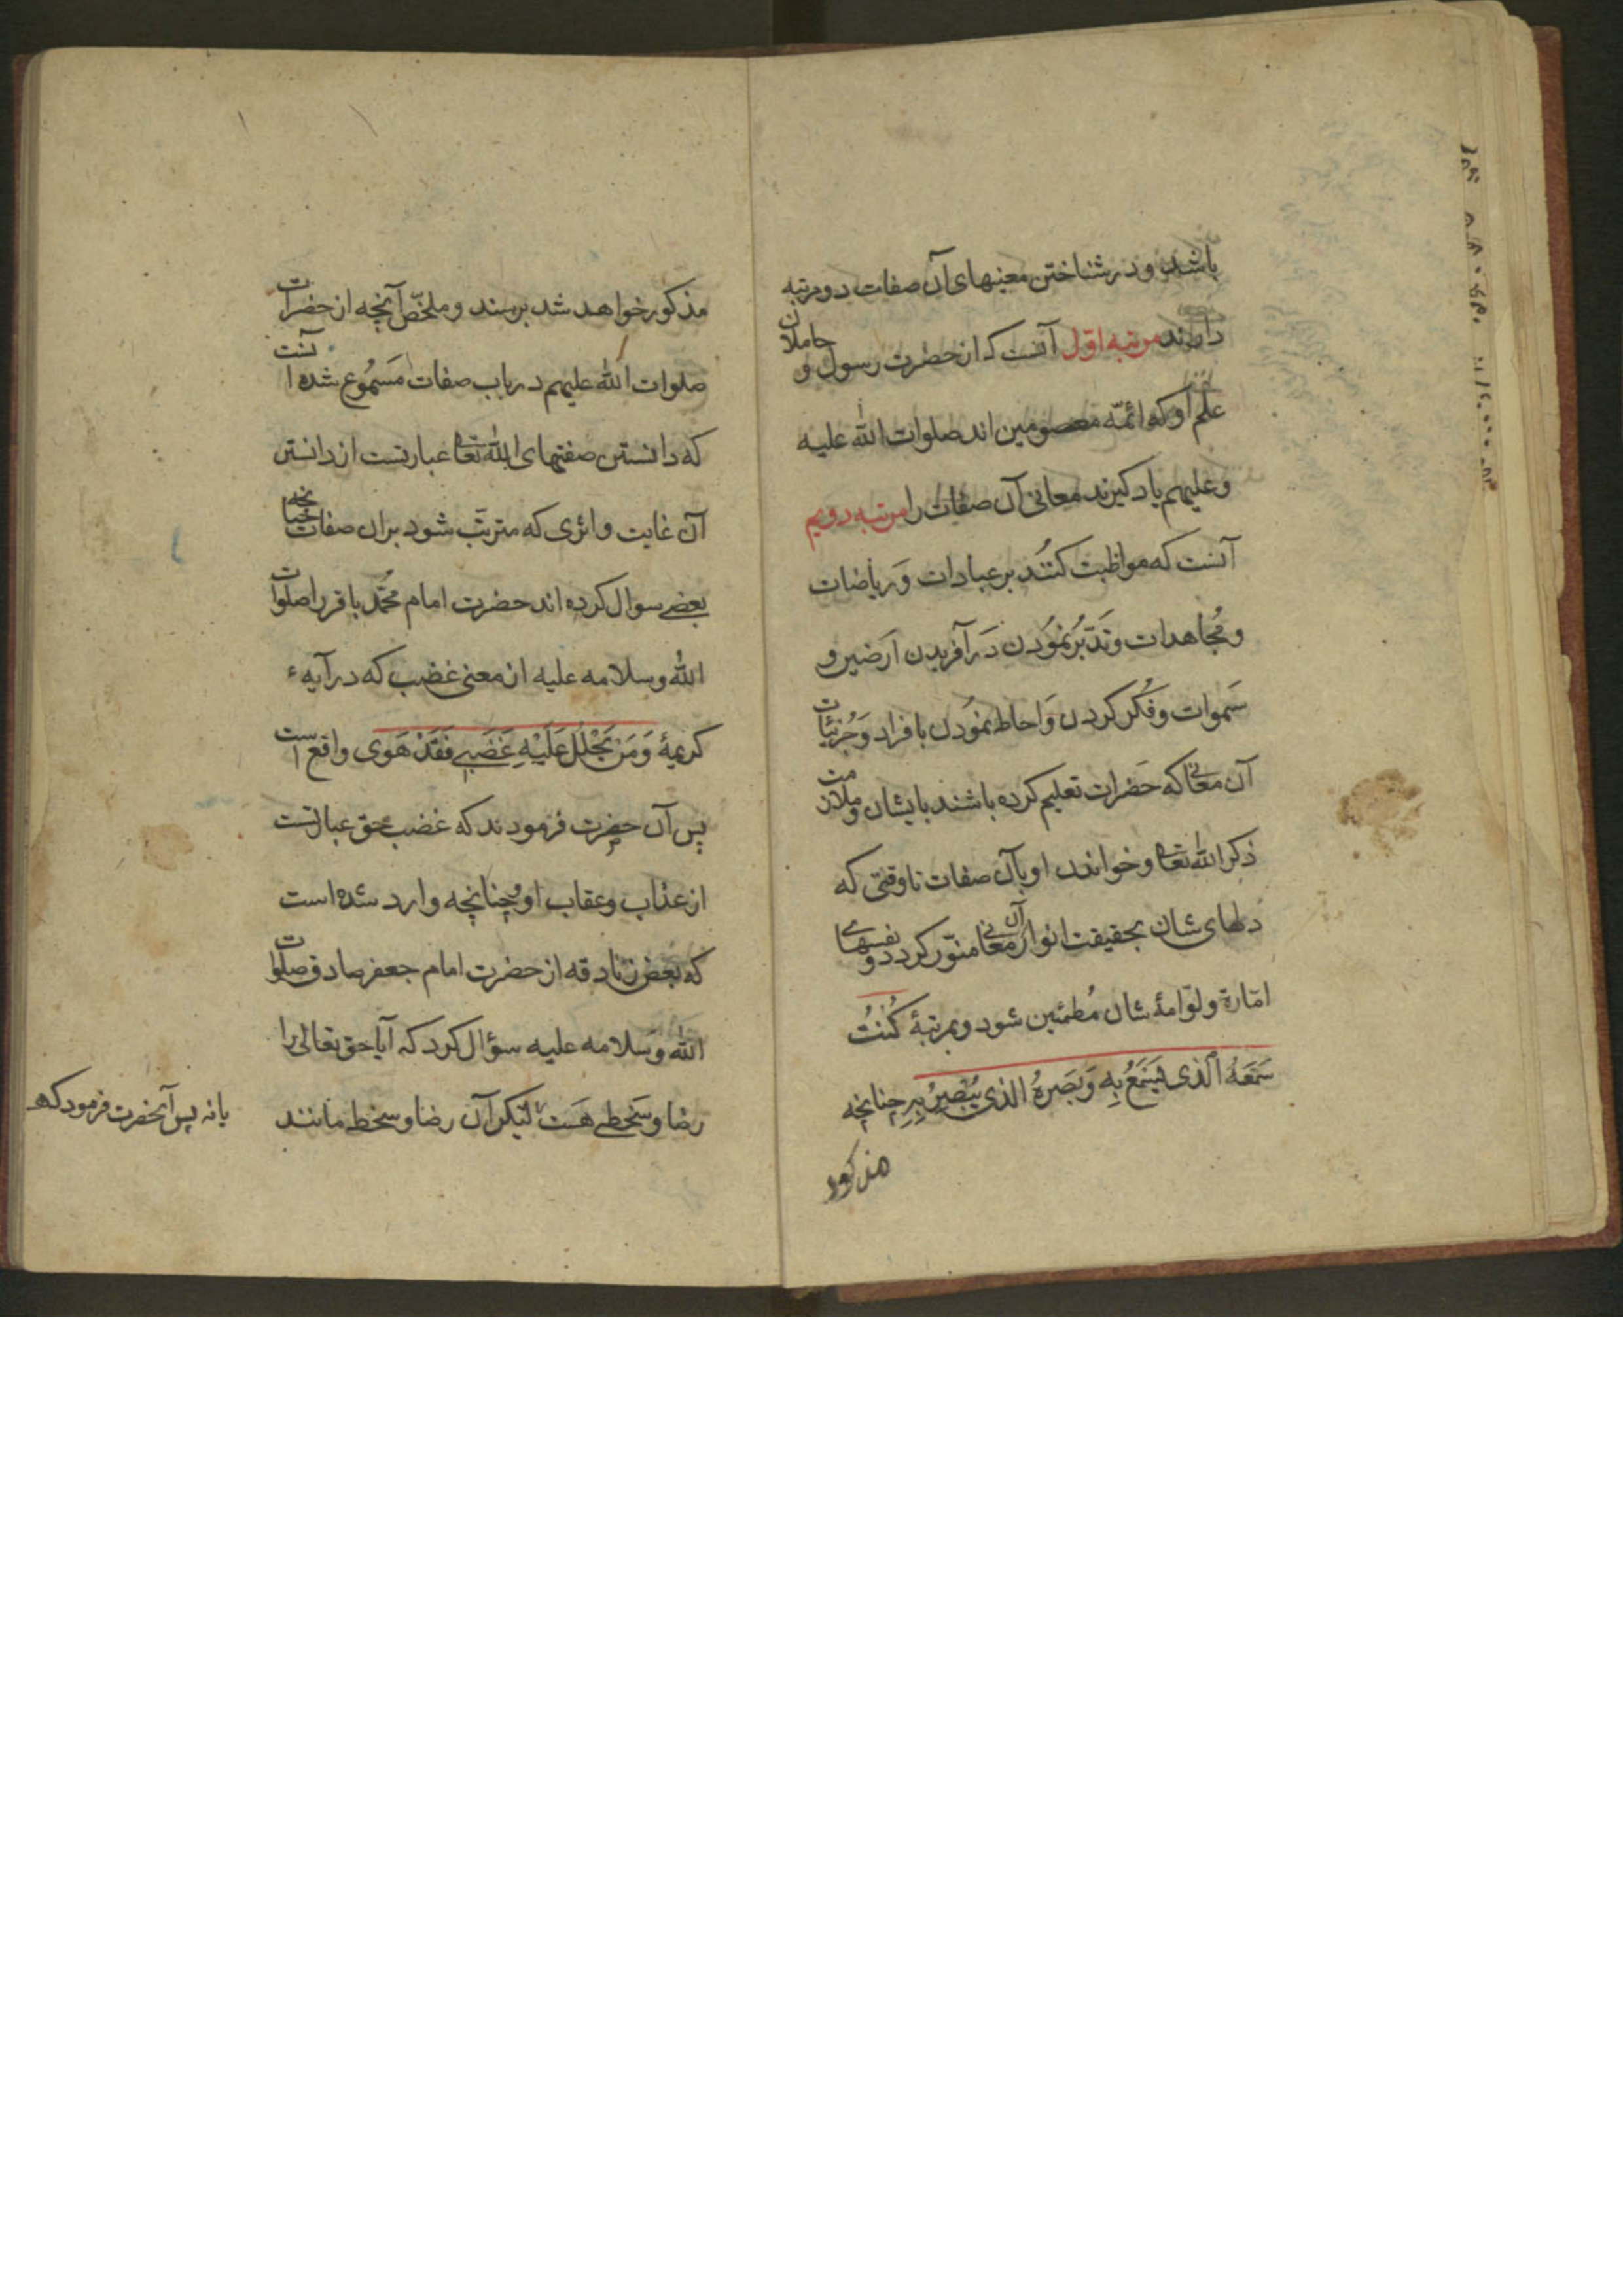 باشد و در شناختن معنیهای آن صفات دو مرتبه
دارند مرتبه اوّل آنست که از حضرت رسول و حاملان
علم او که ائمّه معصومین اند صلوات الله علیه
و علیهم یاد کیرند معانی آن صفات را مرتبه دویم
آنست که مواظبت کنند بر عبادات وَ ریاضات
و مُجاهدات و تَدَبّر نمُودن دَر آفریدن اَرَضین و
سَموات و فکر کردن وَ احاطه نمُودن با فراد وَ جُزئیّات
آن معانی که حَضرات تعلیم کرده باشند بایشان و ملازمت
ذکر الله تعالی و خواندن او بآن صفات تا وقتی که
دلهای شان بحقیقت انوار آن معانی منوّر کردد و نفسهای
امّارة و لوّامهٔ شان مُطمئین شود و بمرتبهٔ کُنتُ
سَمعَهُ الّذی یَسمَعُ بِهِ وَ بَصَرهُ الذی یُبْصِرُ بِهِ چنانچه
مذکور
مذکور خواهد شد برسند و ملخّص آنچه از حضرات
صلوات الله علیهم در باب صفات مَسمُوع شده آنست
که دانستن صفتهای الله تعالی عبارتست از دانستن
آن غایت و اثری که مترتّب شود بران صفات چنانچه
بعضی سوال کرده اند حضرت امام محمّد باقر را صلوات
الله و سلامه علیه از معنی غضب که در آیهٔ
کریمهٔ وَ مَن یَحْلِلْ عَلَیْهِ غَضَبِی فَقَدْ هَوَی واقع است
پس آن حضرت فرمودند که غضب حق عبارتست
از عذاب و عقاب او و چنانچه وارد شده است
که بعض زنادقه از حضرت امام جعفر صادق صلوات
الله و سَلامه علیه سؤال کرد که آیا حق تعالی را
رضا و سَخطی هَست یا نه پس آنحضرت فرمود که لیکن آن رضا و سخط مانند